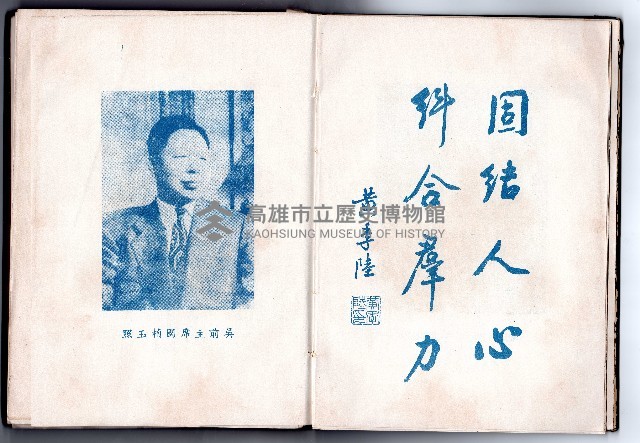 固結人心
糾合羣力
黃季陸
吳前主席國楨玉照
高雄市立歷史博物館
KAOHSIUNG MUSEUM OF HISTORY